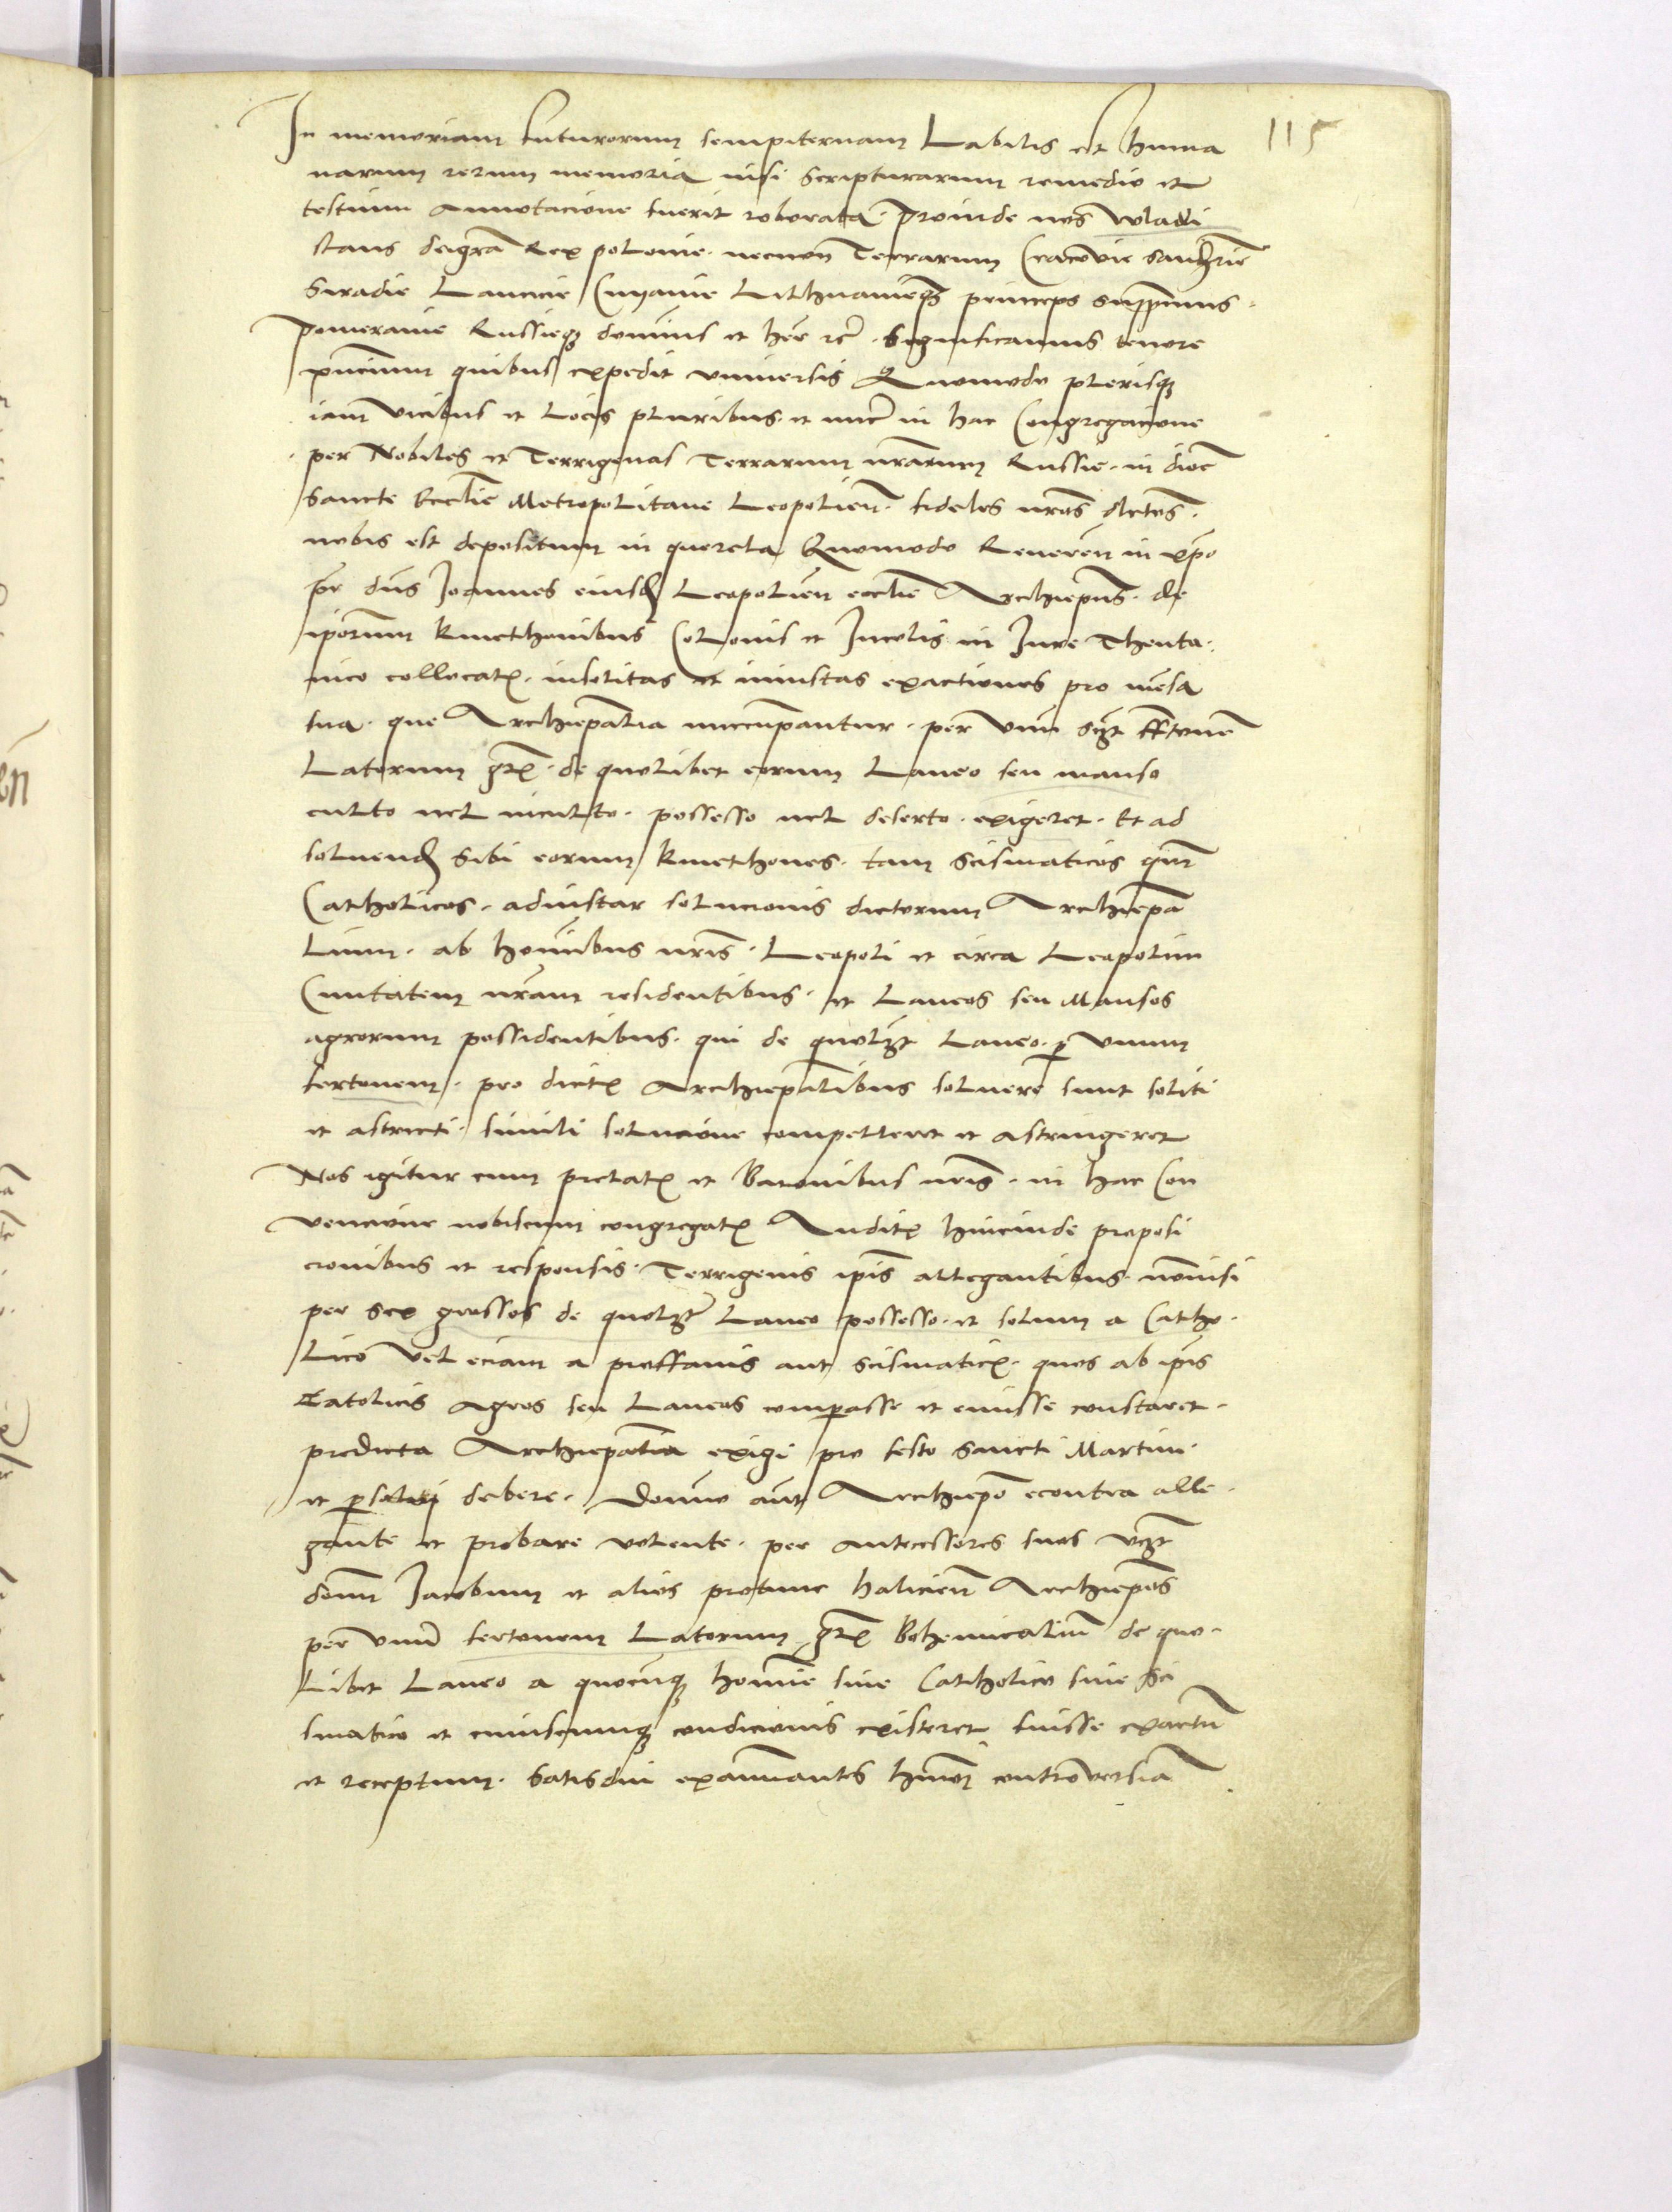 115
In memoriam futurorum sempiternam Labilis est huma
narum rerum memoria nisi scripturarum remedio et
testium annotacione fuerit roborata. Proinde nos Wladi
slaus dei grã Rex polonie. necnon Terrarum Cracovie Sandomirie
Siradie Lancicie Cuyavie Lithuanieqз princeps supremus.
Pomeranie Russieqз dominus et heres etc̃. Significamus tenore
pñcium quibus expedit universis Quomodo plerisqз
iam vicibus et Locis pluribus. et nunc in hac Congregacione
per Nobiles et Terrigenas Terrarum nr̃arum Russie. in dioc̃
Sancte Eccl̃ie Metropolitane Leopolieñ. fideles nr̃os dilectos.
nobis est depositum in querela Quomodo Reverendus in xp̃o
pr̃ dñs Joannes eiusdem Leopolieñ eccl̃ie Archiep̃us. de
ip̃orum kmethonibus Colonis et Incolis in Jure Theuto.
nico collocatis. insolitas et iniustas exactiones pro mensa
sua. que Archiep̃alia nuccupantur. per unum scilicet fertonem
Latorum gr̃. de quolibet eorum Laneo seu manso
culto vel inculto. possesso vel deserto. exigeret. Et ad
solvend̃ sibi eorum kmethones. tam scismaticos quam
Catholicos. ad instar solucionis dictorum Archiep̃a
lium. ab hominibus nr̃is. Leopoli et circa Leopolim
Civitatem nr̃am residentibus. et Laneos seu Mansos
agrorum possidentibus. qui de quolibet Laneo. per unum
fertonem. pro dictis Archiep̃alibus solvere sunt soliti
et astricti. simili solucione compelleret et astringeret
Nos igitur cum prelatis et Baronibus nr̃is. in hac Con
vencione nobiscum congregatis Auditis hincinde proposi
cionibus et responsis. Terrigenis ip̃is allegantibus. nonnisi
per sex grossos de quolibet Laneo possesso. et solum a Catho.
lico vel eciam a proffanis aut scismaticis. quos ab ip̃is
Catolicis Agros seu Laneos comparasse et emisse constaret.
predicta Archiep̃alia exigi pro festo Sancti Martini.
et persolvi debere. Domino aũt Archiep̃o econtra alle.
gante et probare volente. per antecessores suos videlicet
domĩ Jacobum et alios protunc halicieñ Archiep̃os
per unum fertonem Latorum gr̃ Bohemicalium de quo.
Libet Laneo a quocunqз homine sive Catholico sive Sci
smatico et cuiuscunqз condicionis existeret fuisse exactum
et receptum. Satis diu examinantes hmõi controversiam